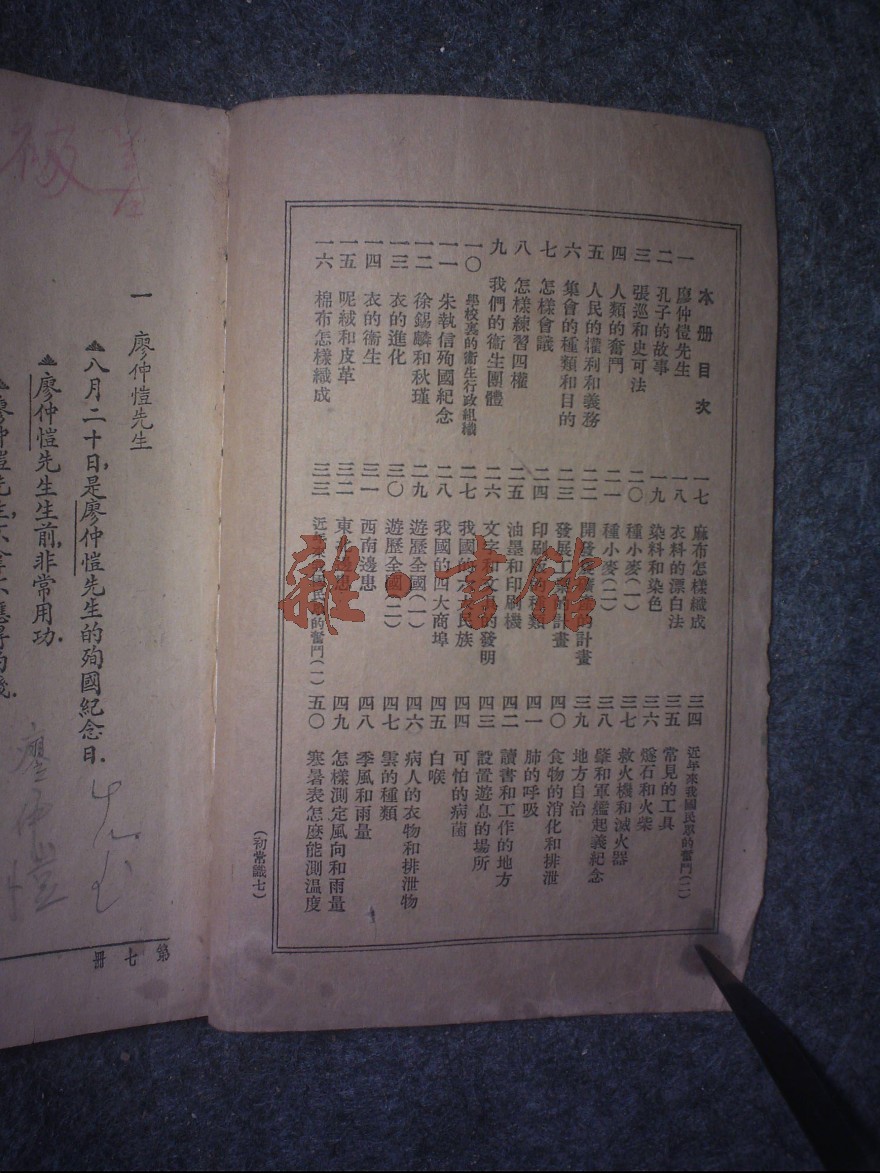 本册目次
一 廖仲愷先生
二 孔子的故事
三 張巡和史可法
四 人類的奮鬥
五 人民的權利和義務
六 集會的種類和目的
七 怎樣會議
八 怎樣練習四權
九 我們的衞生團體
一〇 學校裏的衞生行政組織
一一 朱執信殉國紀念
一二 徐錫麟和秋瑾
一三 衣的進化
一四 衣的衞生
一五 呢絨和皮革
一六 棉布怎樣織成
一七 麻布怎樣織成
一八 衣料的漂白法
一九 染料和染色
二〇 種小麥(一)
二一 種小麥(二)
二二 開發 的計畫
二三 發展工業的計畫
二四 印刷版的種類
二五 油墨和印刷機
二六 文字和文具的發明
二七 我國的六大民族
二八 我國的四大商埠
二九 遊歷全國(一)
三〇 遊歷全國(二)
三一 西南邊患
三二 東北邊患
三三 近年來我國民眾的奮鬥(一)
三四 近年來我國民眾的奮鬥(二)
三五 常見的工具
三六 燧石和火柴
三七 救火機和滅火器
三八 肇和軍艦起義紀念
三九 地方自治
四〇 食物的消化和排泄
四一 肺的呼吸
四二 讀書和工作的地方
四三 設置遊息的場所
四四 可怕的病菌
四五 白喉
四六 病人的衣物和排泄物
四七 雲的種類
四八 季風和雨量
四九 怎樣測定風向和雨量
五〇 寒暑表怎麼能測溫度
(初常識七)
雜·書館
一 廖仲愷先生
八月二十日,是廖仲愷先生的殉國紀念日.
廖仲愷先生生前,非常用功.
廖仲愷先生,
廖仲愷
第七册